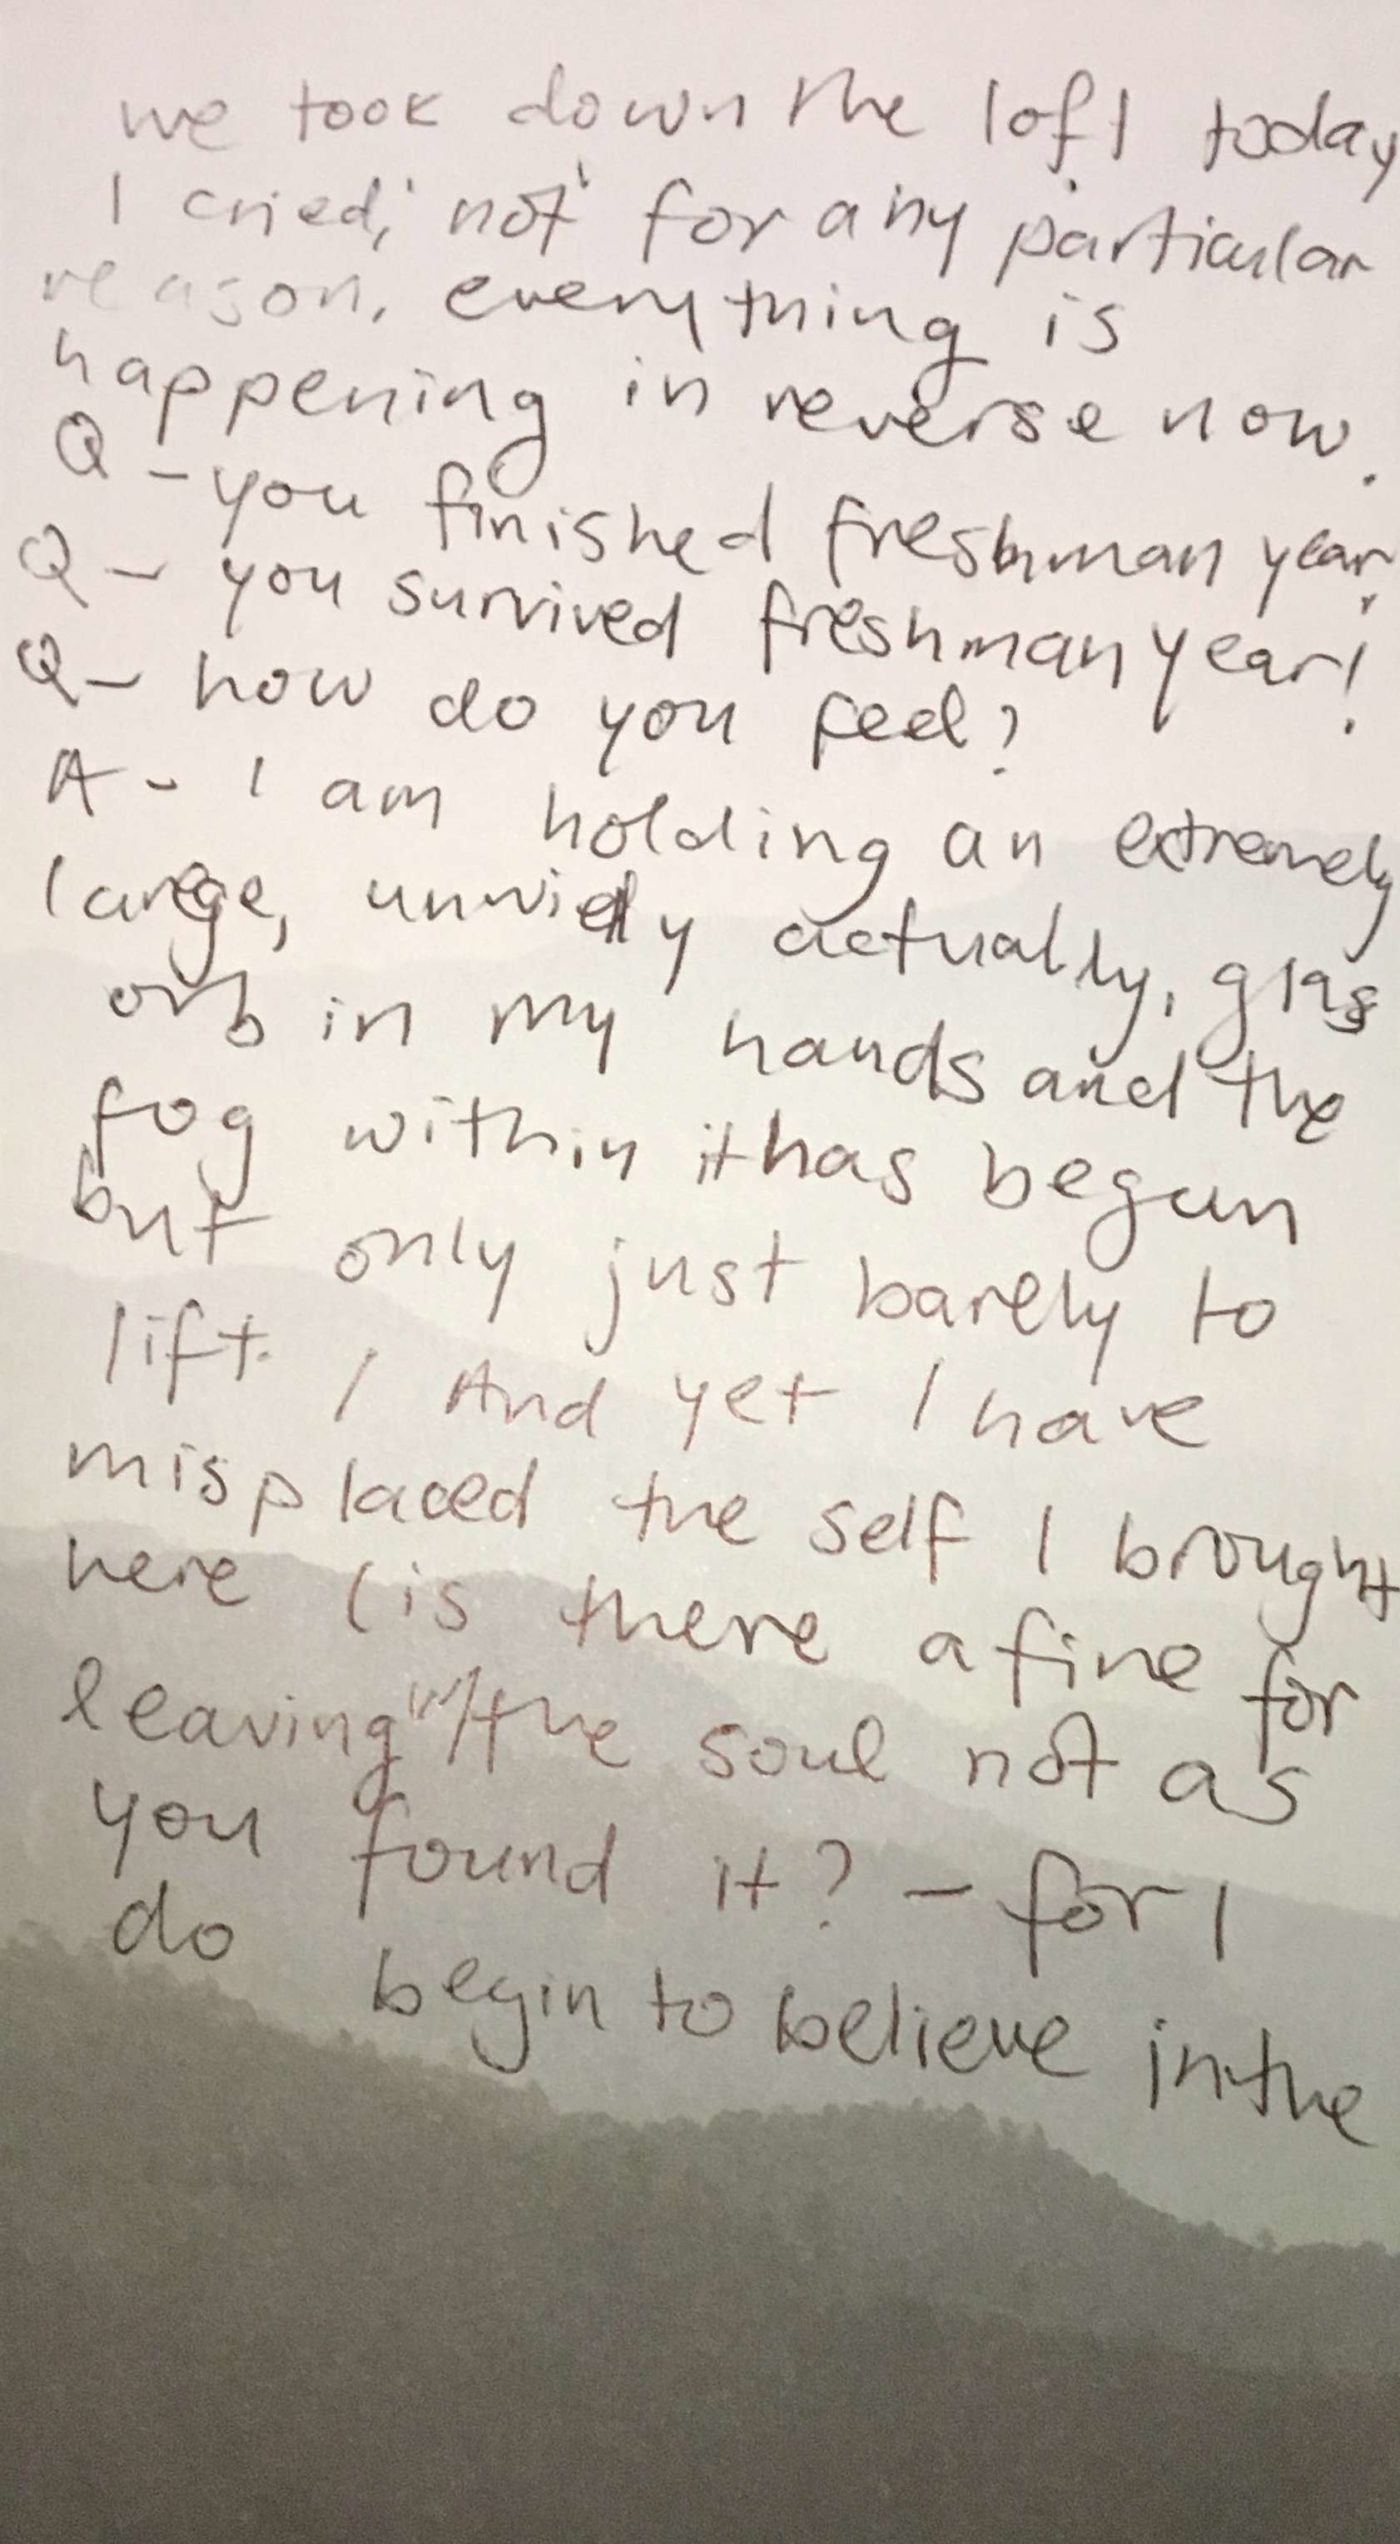 we took down the loft today
I cried, not for any particular
reason. everything is
happening in reverse now.
Q - you finished freshman year!
Q - you survived freshman year!
Q - how do you feel?
A - I am holding an extremely
large, unwieldly actually, glass
orb in my hands and the
fog within it has begun
but only just barely to
lift. / And yet I have
misplaced the self I brought
here (is there a fine for
leaving w/ the soul not as
you found it? - for I
do begin to believe in the